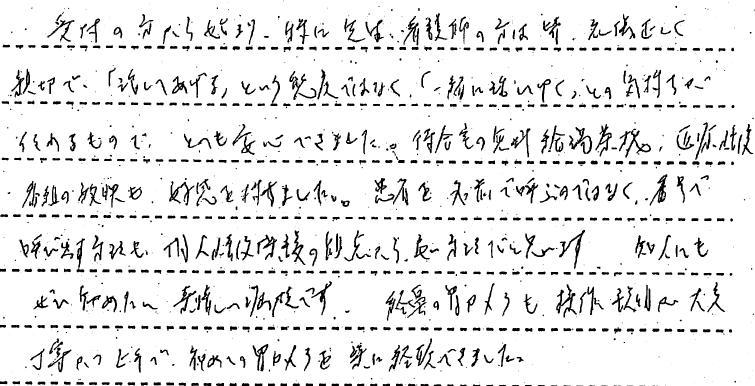 受付の方から始まり、特に先生、看護師の方は皆、礼儀正しく
親切で、「治してあげる」という態度ではなく、「一緒に治していく」との気持ちが
伝わるもので、とても安心できました。待合室の無料給湯茶機。医療情報
番組の放映も、好感を持ちました。患者を名前で呼ぶのではなく、番号で
呼び出す方法も、個人情報保護の観点から良い方法だと思います 知人にも
ぜひ勧めたい素晴しい病院です。 経鼻の胃カメラも操作、説明が大変
丁寧かつ上手で、初めての胃カメラを楽に経験できました。